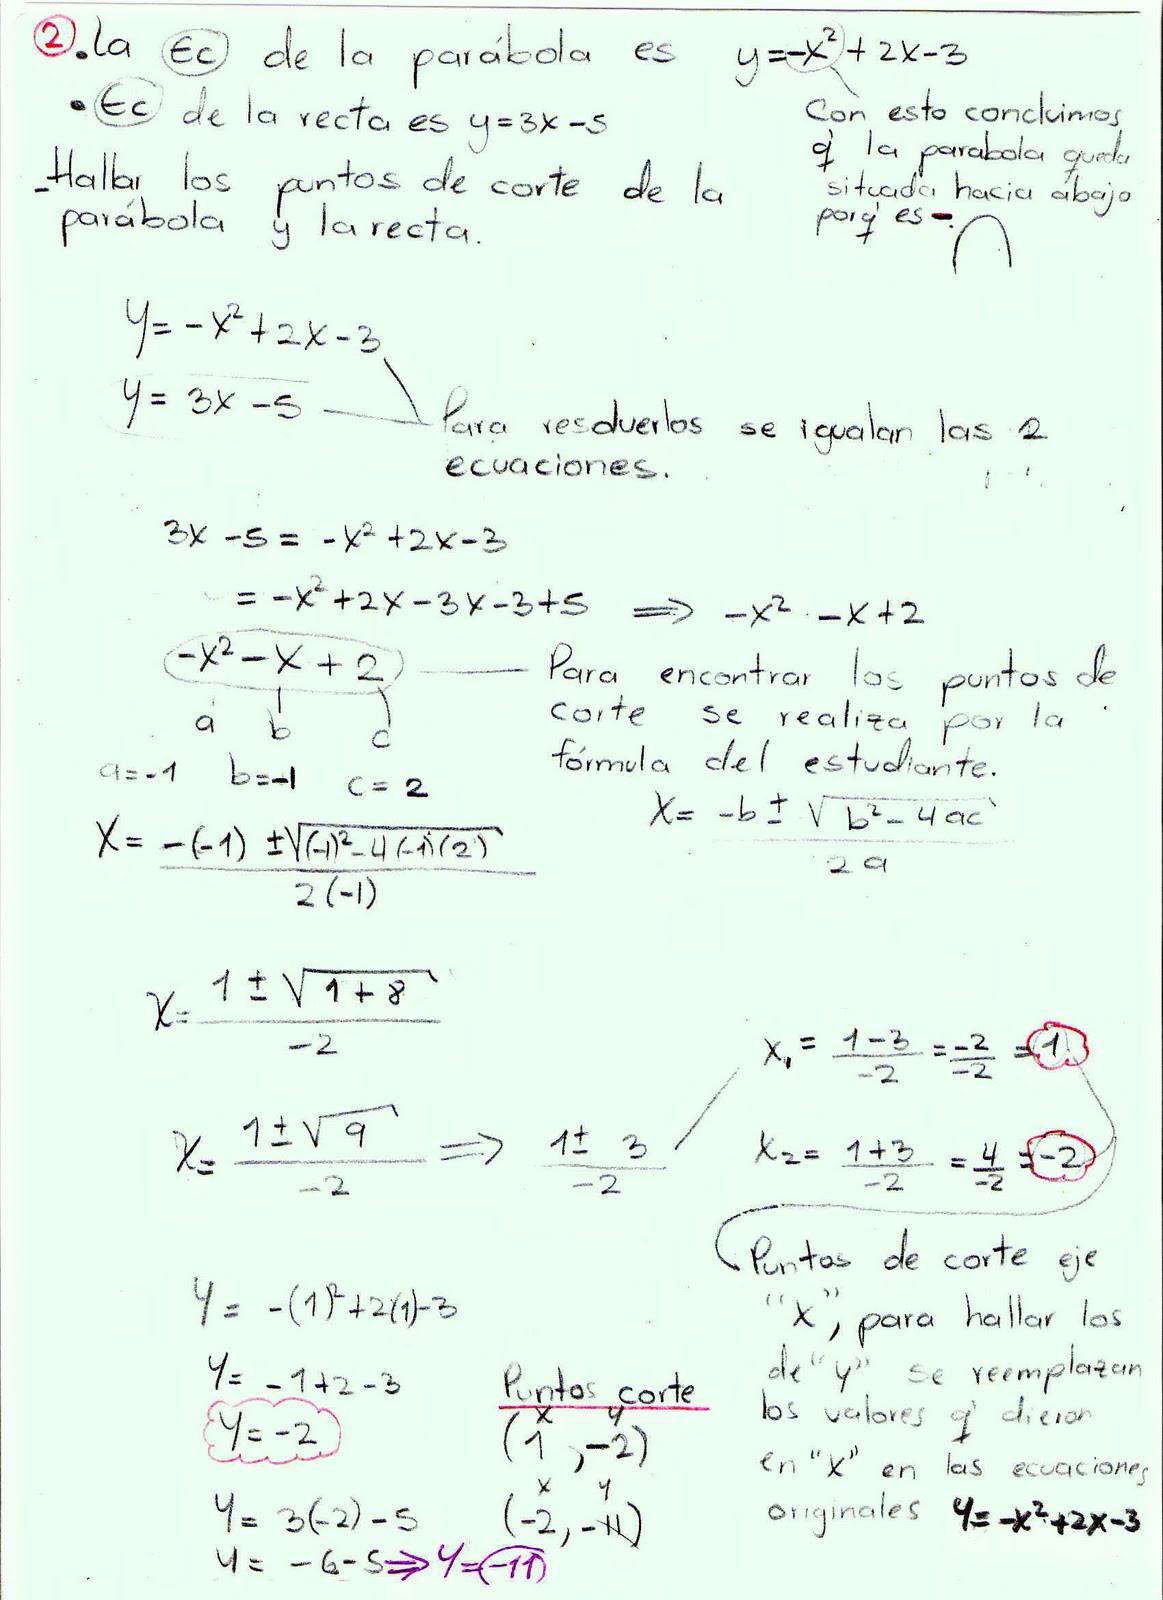 2. La Ec de la parábola es y=-x²+2x-3
• Ec de la recta es y=3x-5
Con esto concluimos
q' la parabola queda
situada hacia abajo
porq' es -.
-Hallar los puntos de corte de la
parábola y la recta.
y=-x²+2x-3
y= 3x-5
Para resolverlos se igualan las 2
ecuaciones.
3x-5= -x²+2x-3
= -x²+2x-3x-3+5 ⇒ -x² -x+2
-x²-x+2
a b c
Para encontrar los puntos de
corte se realiza por la
fórmula del estudiante.
a=-1 b=-1 c=2
x= -b±√b²-4ac / 2a
x= -(-1) ±√(-1)²-4(-1)(2) / 2(-1)
x= 1±√1+8 / -2
x= 1±√9 / -2 ⇒ 1± 3 / -2
x₁= 1-3 / -2 = -2 / -2 = 1
x₂= 1+3 / -2 = 4 / -2 = -2
Puntos de corte eje
"x", para hallar los
de "y" se reemplazan
los valores q' dieron
en "x" en las ecuaciones
originales y=-x²+2x-3
y= -(1)²+2(1)-3
y= -1+2-3
y=-2
Puntos corte
x y
(1,-2)
x y
(-2,-11)
y= 3(-2)-5
y= -6-5⇒y=-11